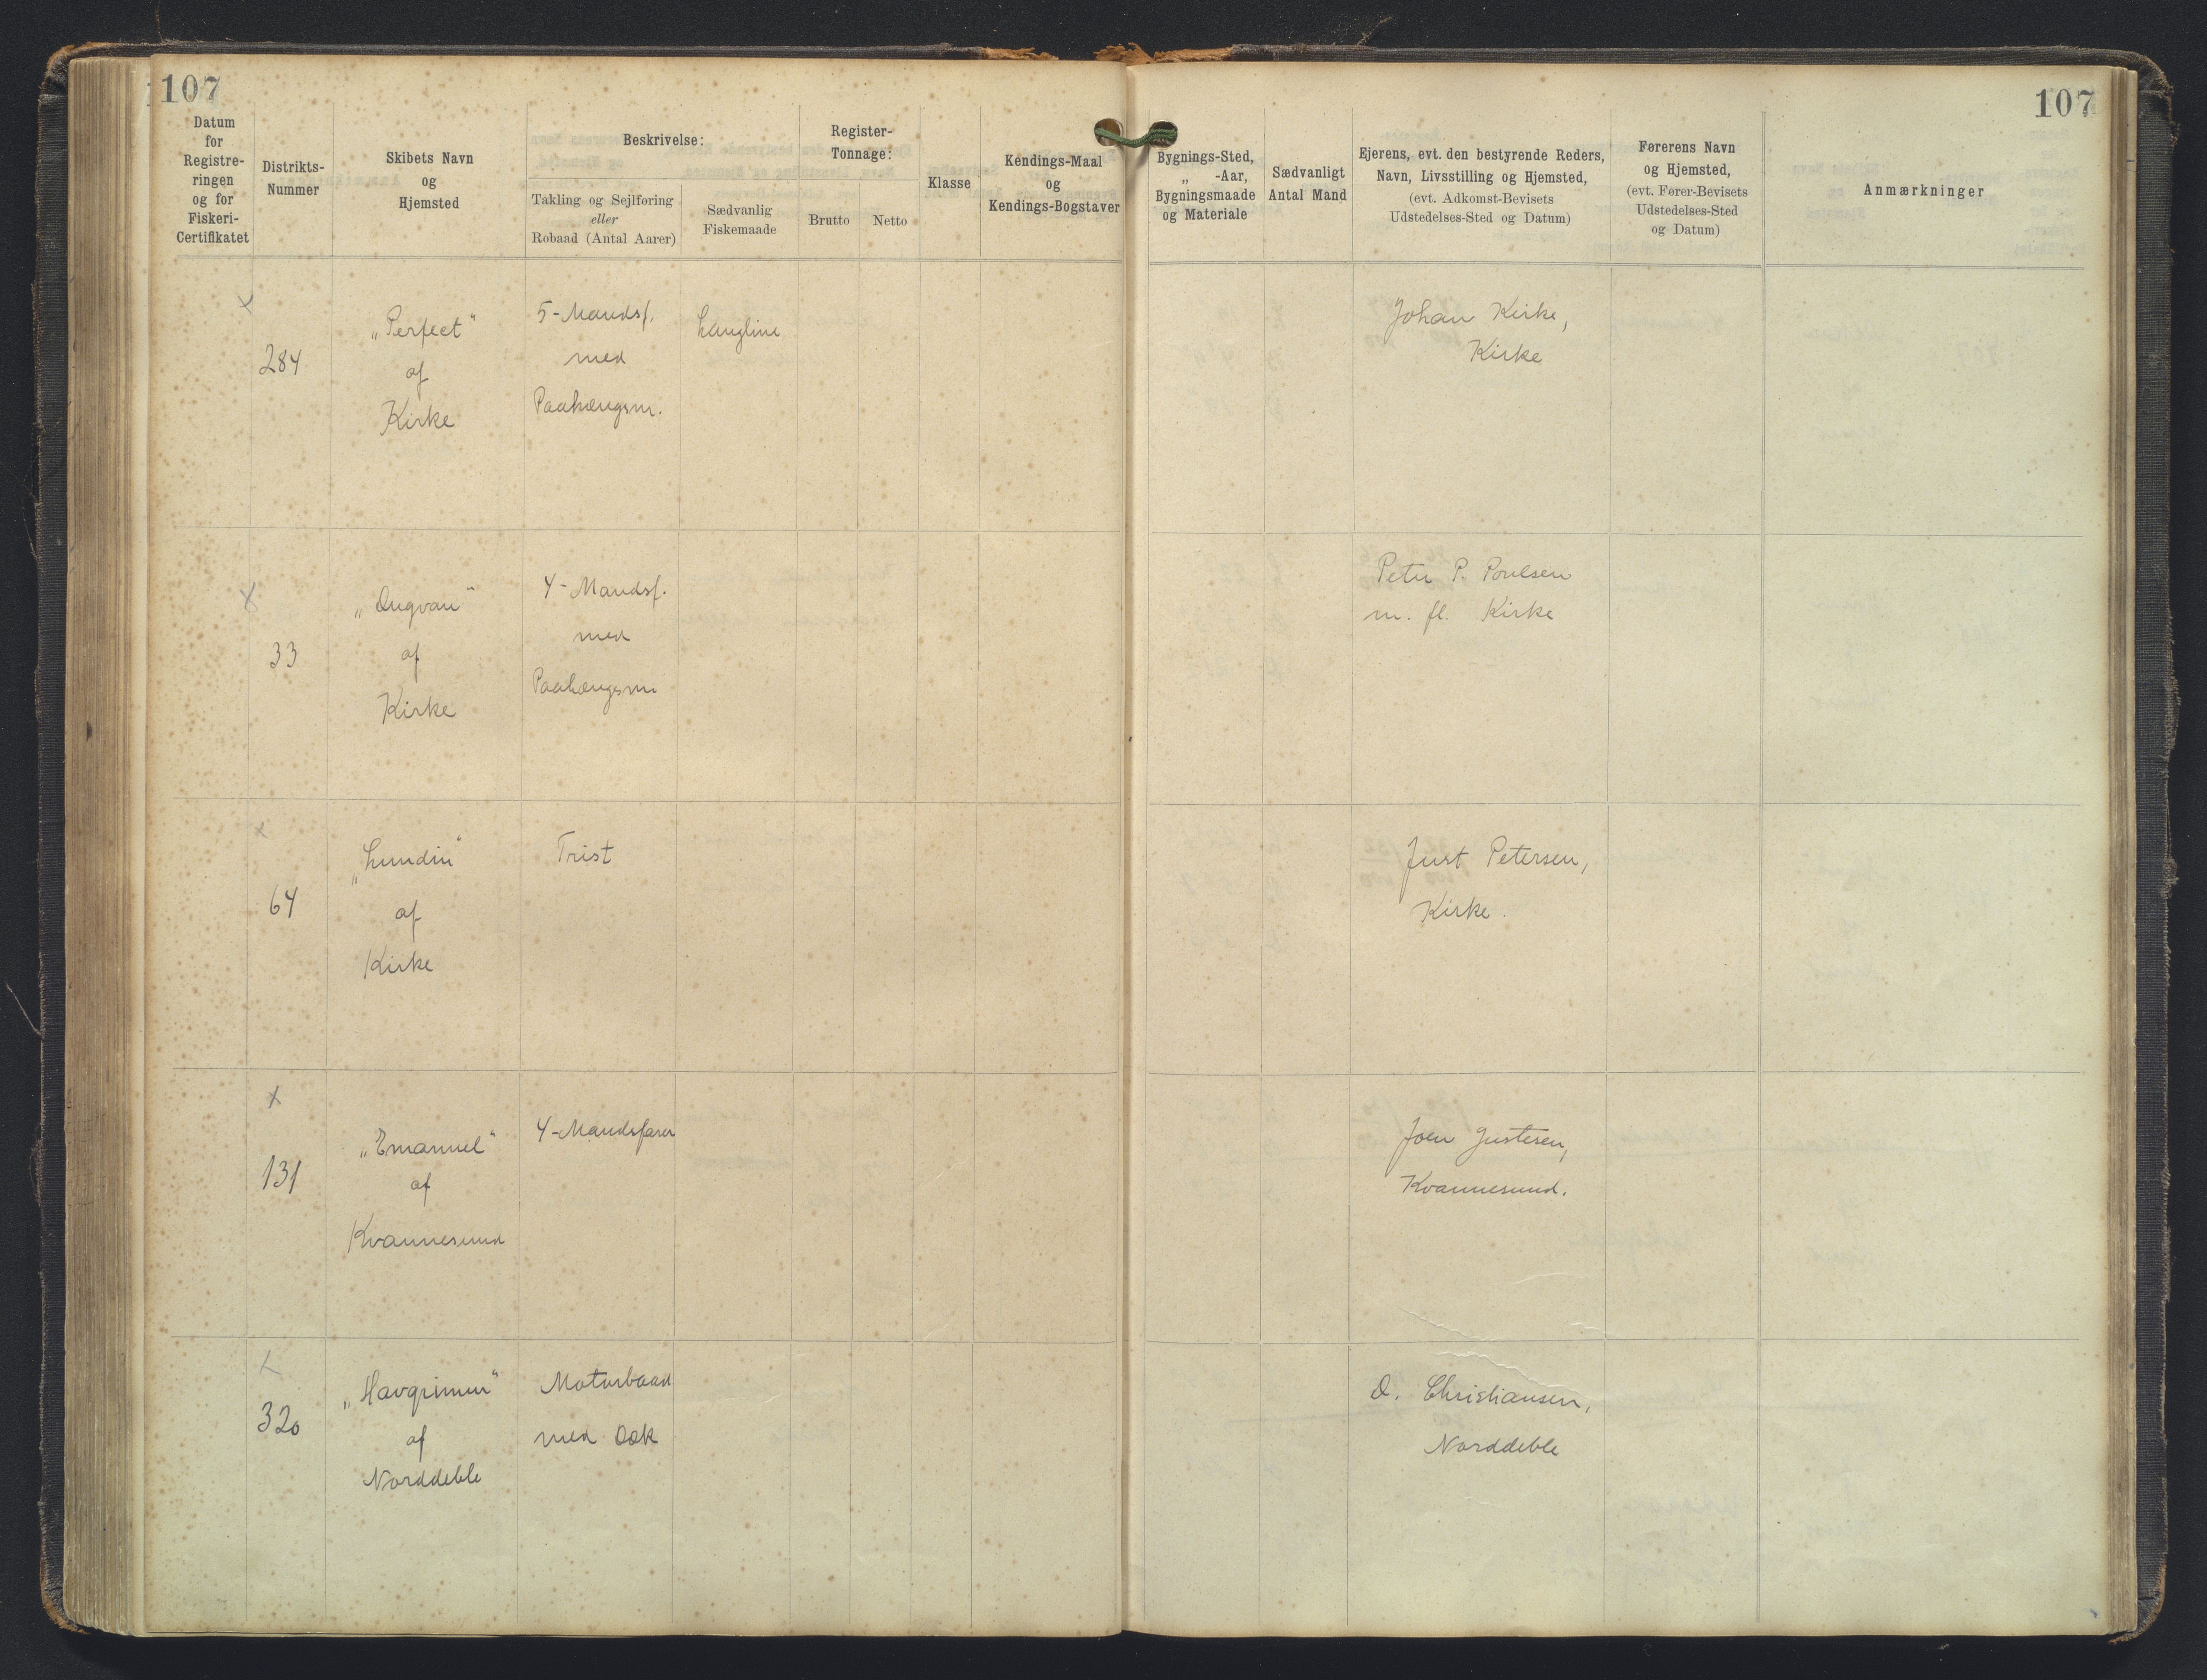 107
107
Datum
for
Registre-
ringen
og for
Fiskeri-
Certifikatet
Distrikts-
Nummer
Skibets Navn
og
Hjemsted
Beskrivelse:
Takling og Sejlføring
eller
Robaad (Antal Aarer)
Sædvanlig
Fiskemaade
Register-
Tonnage:
Brutto
Netto
Klasse
Kendings-Maal
og
Kendings-Bogstaver
Bygnings-Sted,
„ -Aar,
Bygningsmaade
og Materiale
Sædvanligt
Antal Mand
Ejerens, evt. den bestyrende Reders,
Navn, Livsstilling og Hjemsted,
(evt. Adkomst-Bevisets
Udstedelses-Sted og Datum)
Førerens Navn
og Hjemsted,
(evt. Fører-Bevisets
Udstedelses-Sted
og Datum)
Anmærkninger
x
284
„Perfect"
af
Kirke
5-Mandsf.
med
Paahængsm.
Langline
Johan Kirke,
Kirke
x
33
af
Kirke
4-Mandsf.
med
Paahængsm
Peter P. Poulsen
m. fl. Kirke
x
64
„Lundin"
af
Kirke
Trist
Just Petersen,
Kirke.
x
131
„Emanuel"
af
Kvannesund
4-Mandsfarer
Joen Justesen,
Kvannesund.
x
320
„Havgrimur"
af
Norddeble
Motorbaad
med Dæk
D. Christiansen,
Norddeble